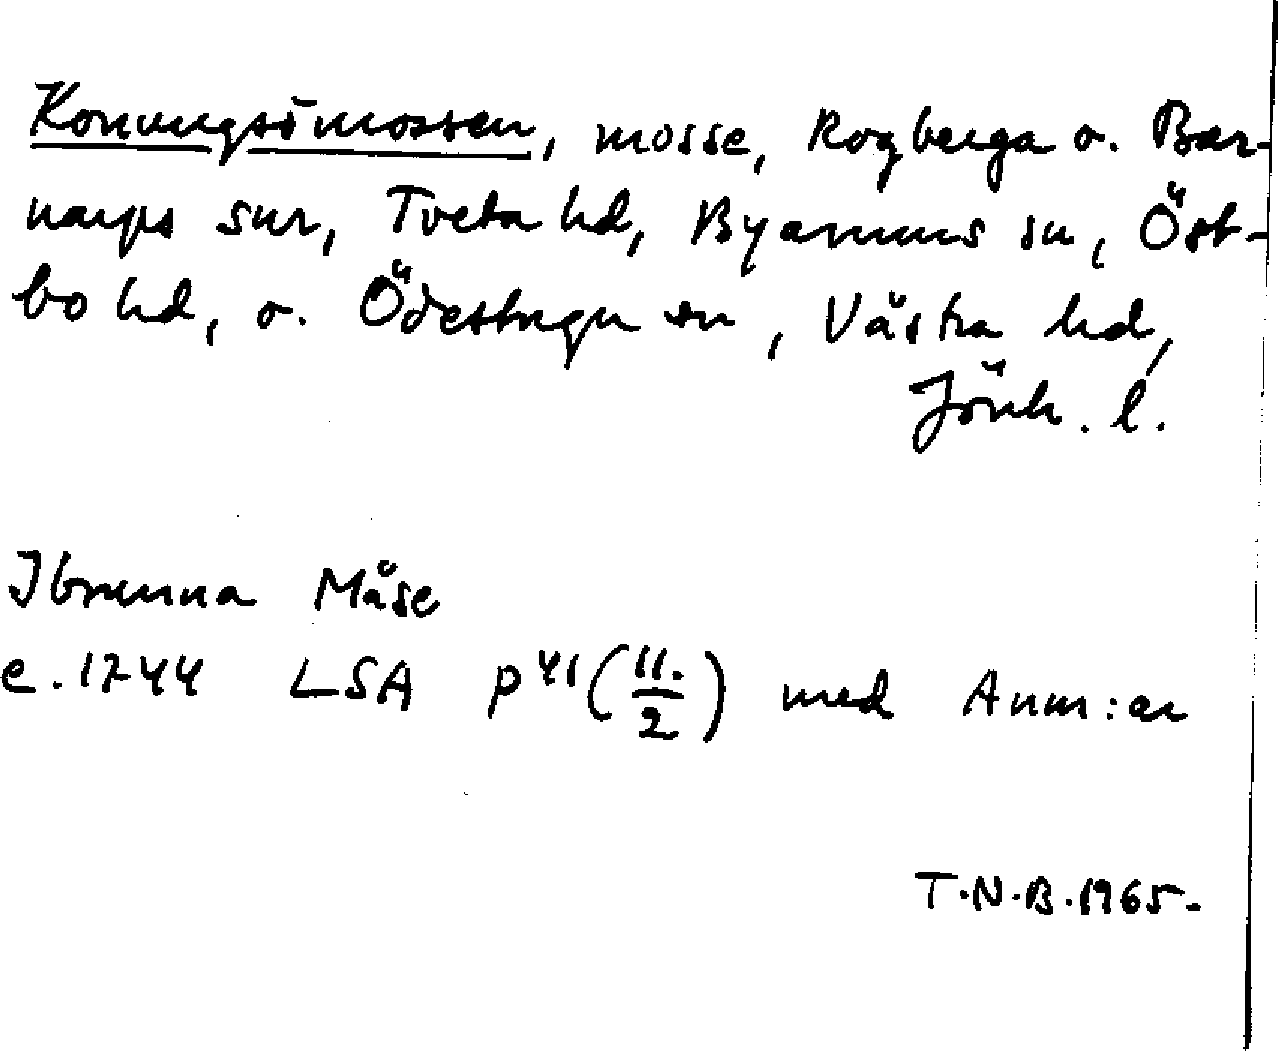 Konungsömossen, mosse, Rogberga o. Bar-
narps snr, Tveta hd, Byarums sn, Öst-
bo hd, o. Ödestugu sn, Västra hd,
Jönk. l.
Ibrunna Måse
c. 1744 LSA P 41 (11./2) med Anm:ar
T.N.B. 1965-